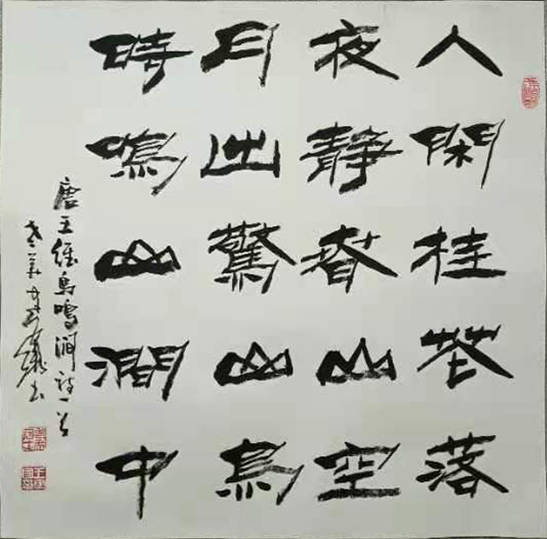 人閑桂花落
夜靜春山空
月出驚山鳥
時鳴山澗中
唐王維鳥鳴澗詩一首